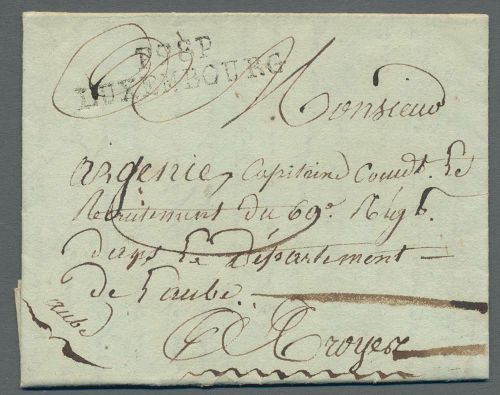 P98P
LUXEMBOURG
Monsieur
argenie, Capitaine Comdt. Le
Recrutement du 69e. Régt.
dans Le Département
de L'aube.
aube
A Troyes